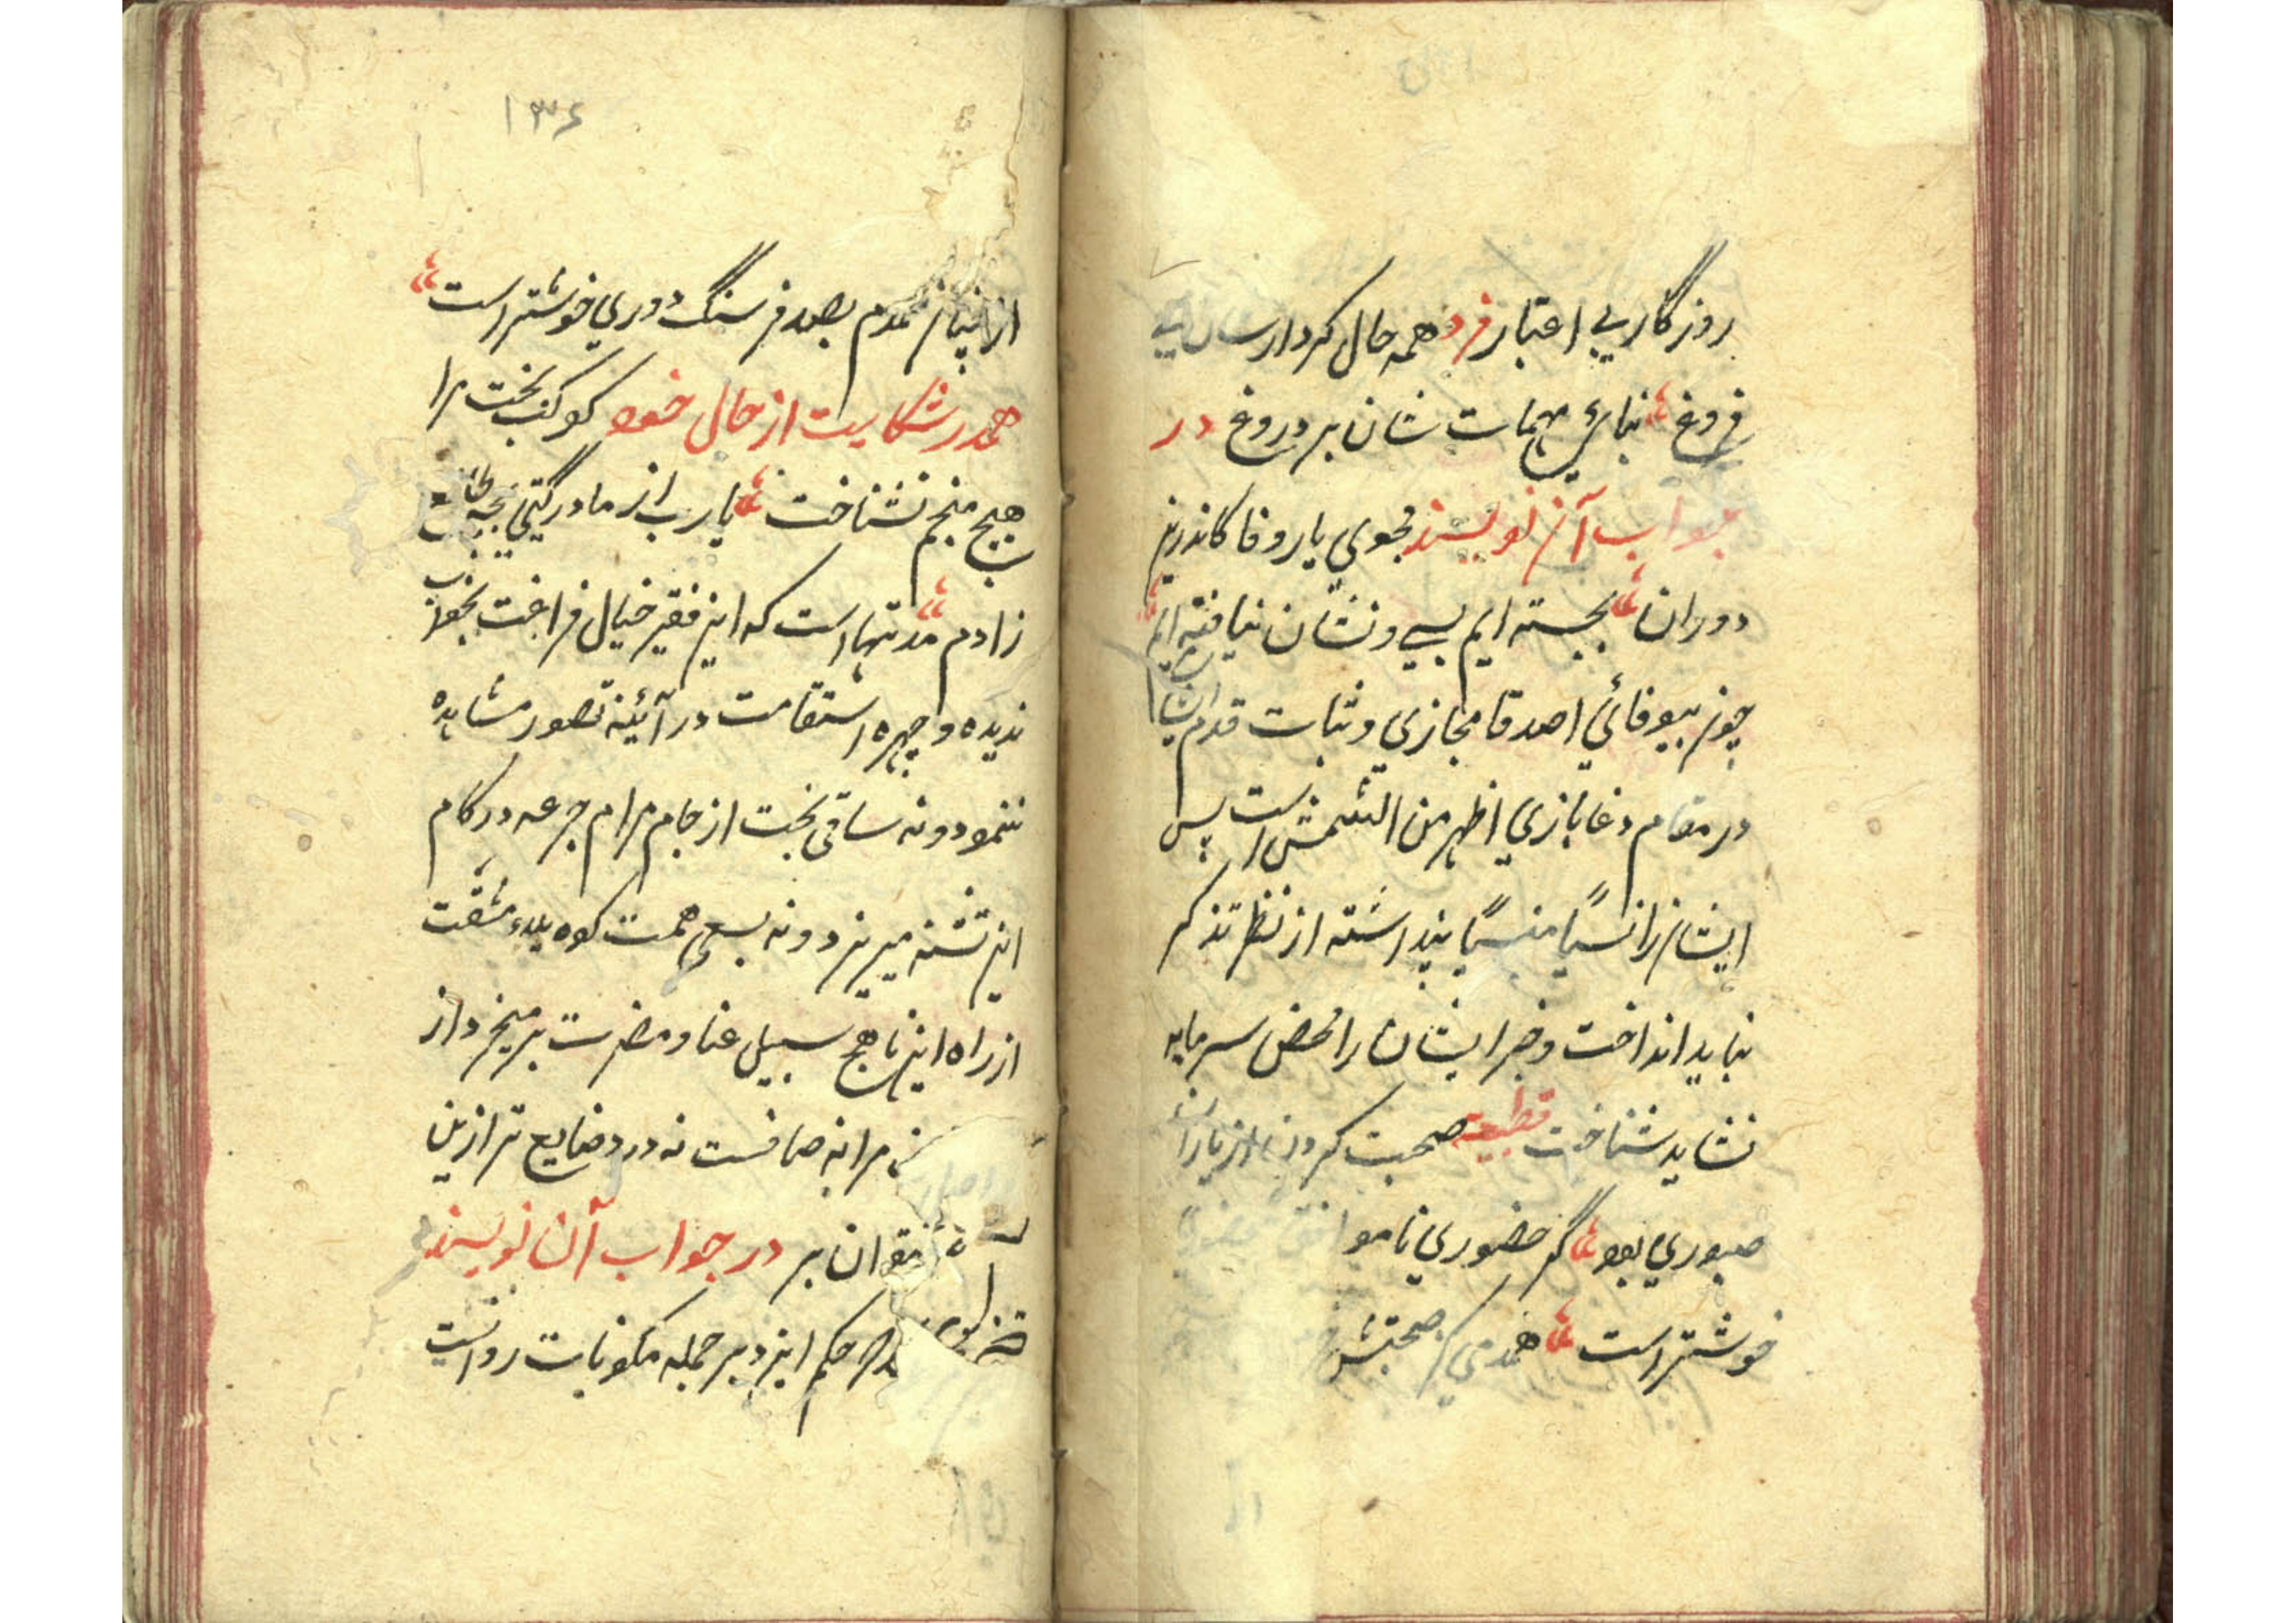 روزگار بي اعتبار فرد همه حال كردارشان بي
فروغ بناي مهمات شان بر دروغ در
جواب آن نويسند مجوي يار و فا كاندرين
دوران بجسته ايم بسي و نشان نيافته ايم
چون بيوفائي اصدقا مجازي و ثبات قدم ايشان
در مقام دغا بازي اظهر من الشمس است پس
ايشان را نسيًا منسيًا پنداشته از نظر تذكر
نبايد انداخت و ضرر ايشان را محض سرمايه
نشايد شناخت قطعه صحبت كردن از ياران
صبوري بود گر حضوري ناموافق
خوشتر است همدمي كز صحبتش
١٣٤
از نياز همدم بصد فرسنگ دوري خوشتر است
همدر شكايت از حال خود كوكب بخت مرا
هيچ منجم نشناخت يا رب از مادر گيتي بچه طالع
زادم مدتهاست كه اين فقير خيال فراغت بخواب
نديده و چهره استقامت در آئينه تصور مشاهده
ننمود و نه ساقي بخت از جام مرام جرعه در كام
اين تشنه ميريزد و نه بسعي همت كوه بلاء مشقت
از راه اين ناهج سبيل عنا و مضرت برميخيزد از
مرا نه صافست نه درد ضايع تر ازين
نتوان بر در جواب آن نويسند
حكم ايزد بر جمله مكونات روانست